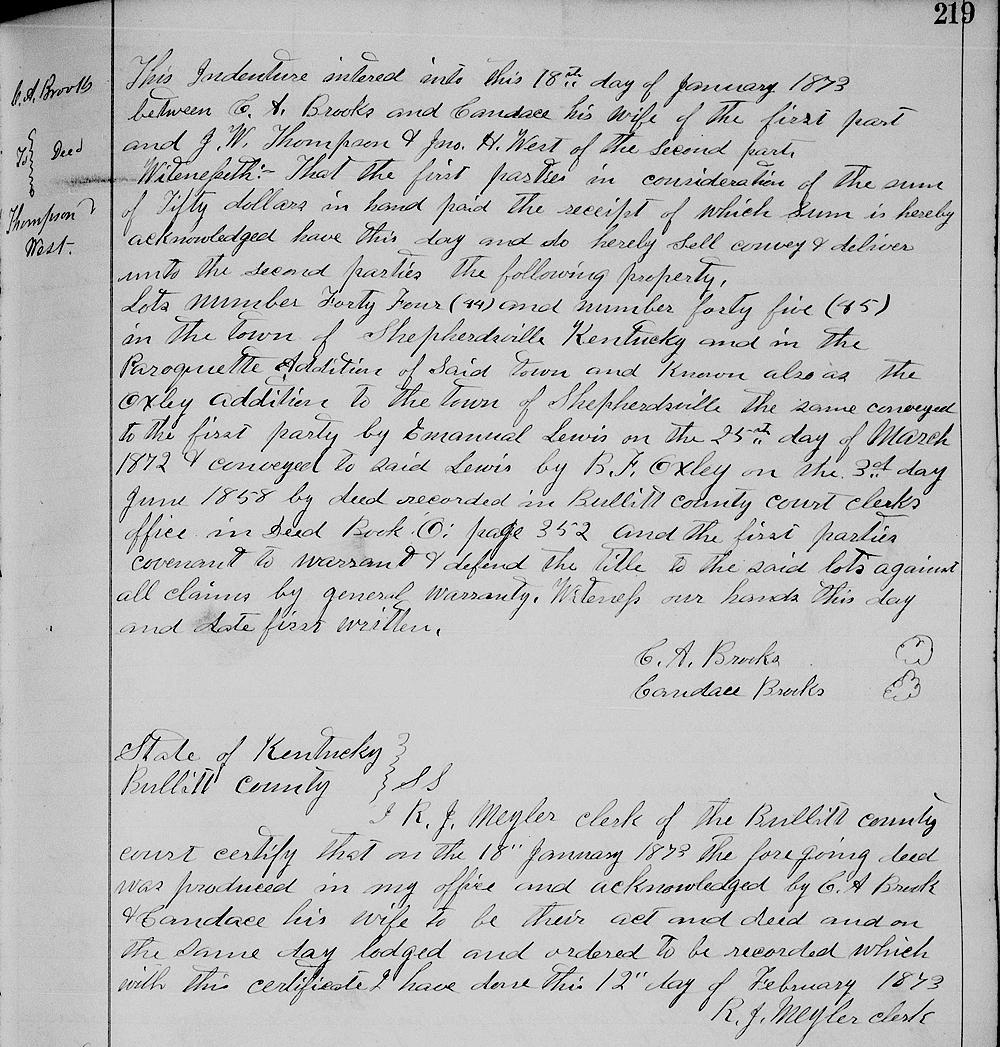 219
C. A. Brooks
To } Deed
Thompson &
West.
This Indenture intered into this 18th day of January 1873
between C. A. Brooks and Candace his wife of the first part
and J. W. Thompson & Jno. H. West of the second part.
Witenesseth:- That the first parties in consideration of the sum
of Fifty dollars in hand paid the receipt of which sum is hereby
acknowledged have this day and do hereby sell convey & deliver
unto the second parties the following property.
Lots number Forty Four (44) and number forty five (45)
in the Town of Shepherdsville Kentucky and in the
Paroquette Addition of said town and known also as the
Oxley addition to the town of Shepherdsville the same conveyed
to the first party by Emanual Lewis on the 25th day of March
1872 & conveyed to said Lewis by B. F. Oxley on the 3rd day
June 1858 by deed recorded in Bullitt county court clerks
office in Deed Book "O" page 352 and the first parties
covenant to warrant & defend the title to the said lots against
all claims by general warranty. Witeness our hands this day
and date first written.
C. A. Brooks
Candace Brooks
State of Kentucky }
Bullitt county } SS
I R. J. Meyler clerk of the Bullitt county
court certify that on the 18" January 1873 the foregoing deed
was produced in my office and acknowledged by C. A Brook
& Candace his wife to be their act and deed and on
the same day lodged and ordered to be recorded which
with this certificate I have done this 12" day of February 1873
R. J. Meyler clerk